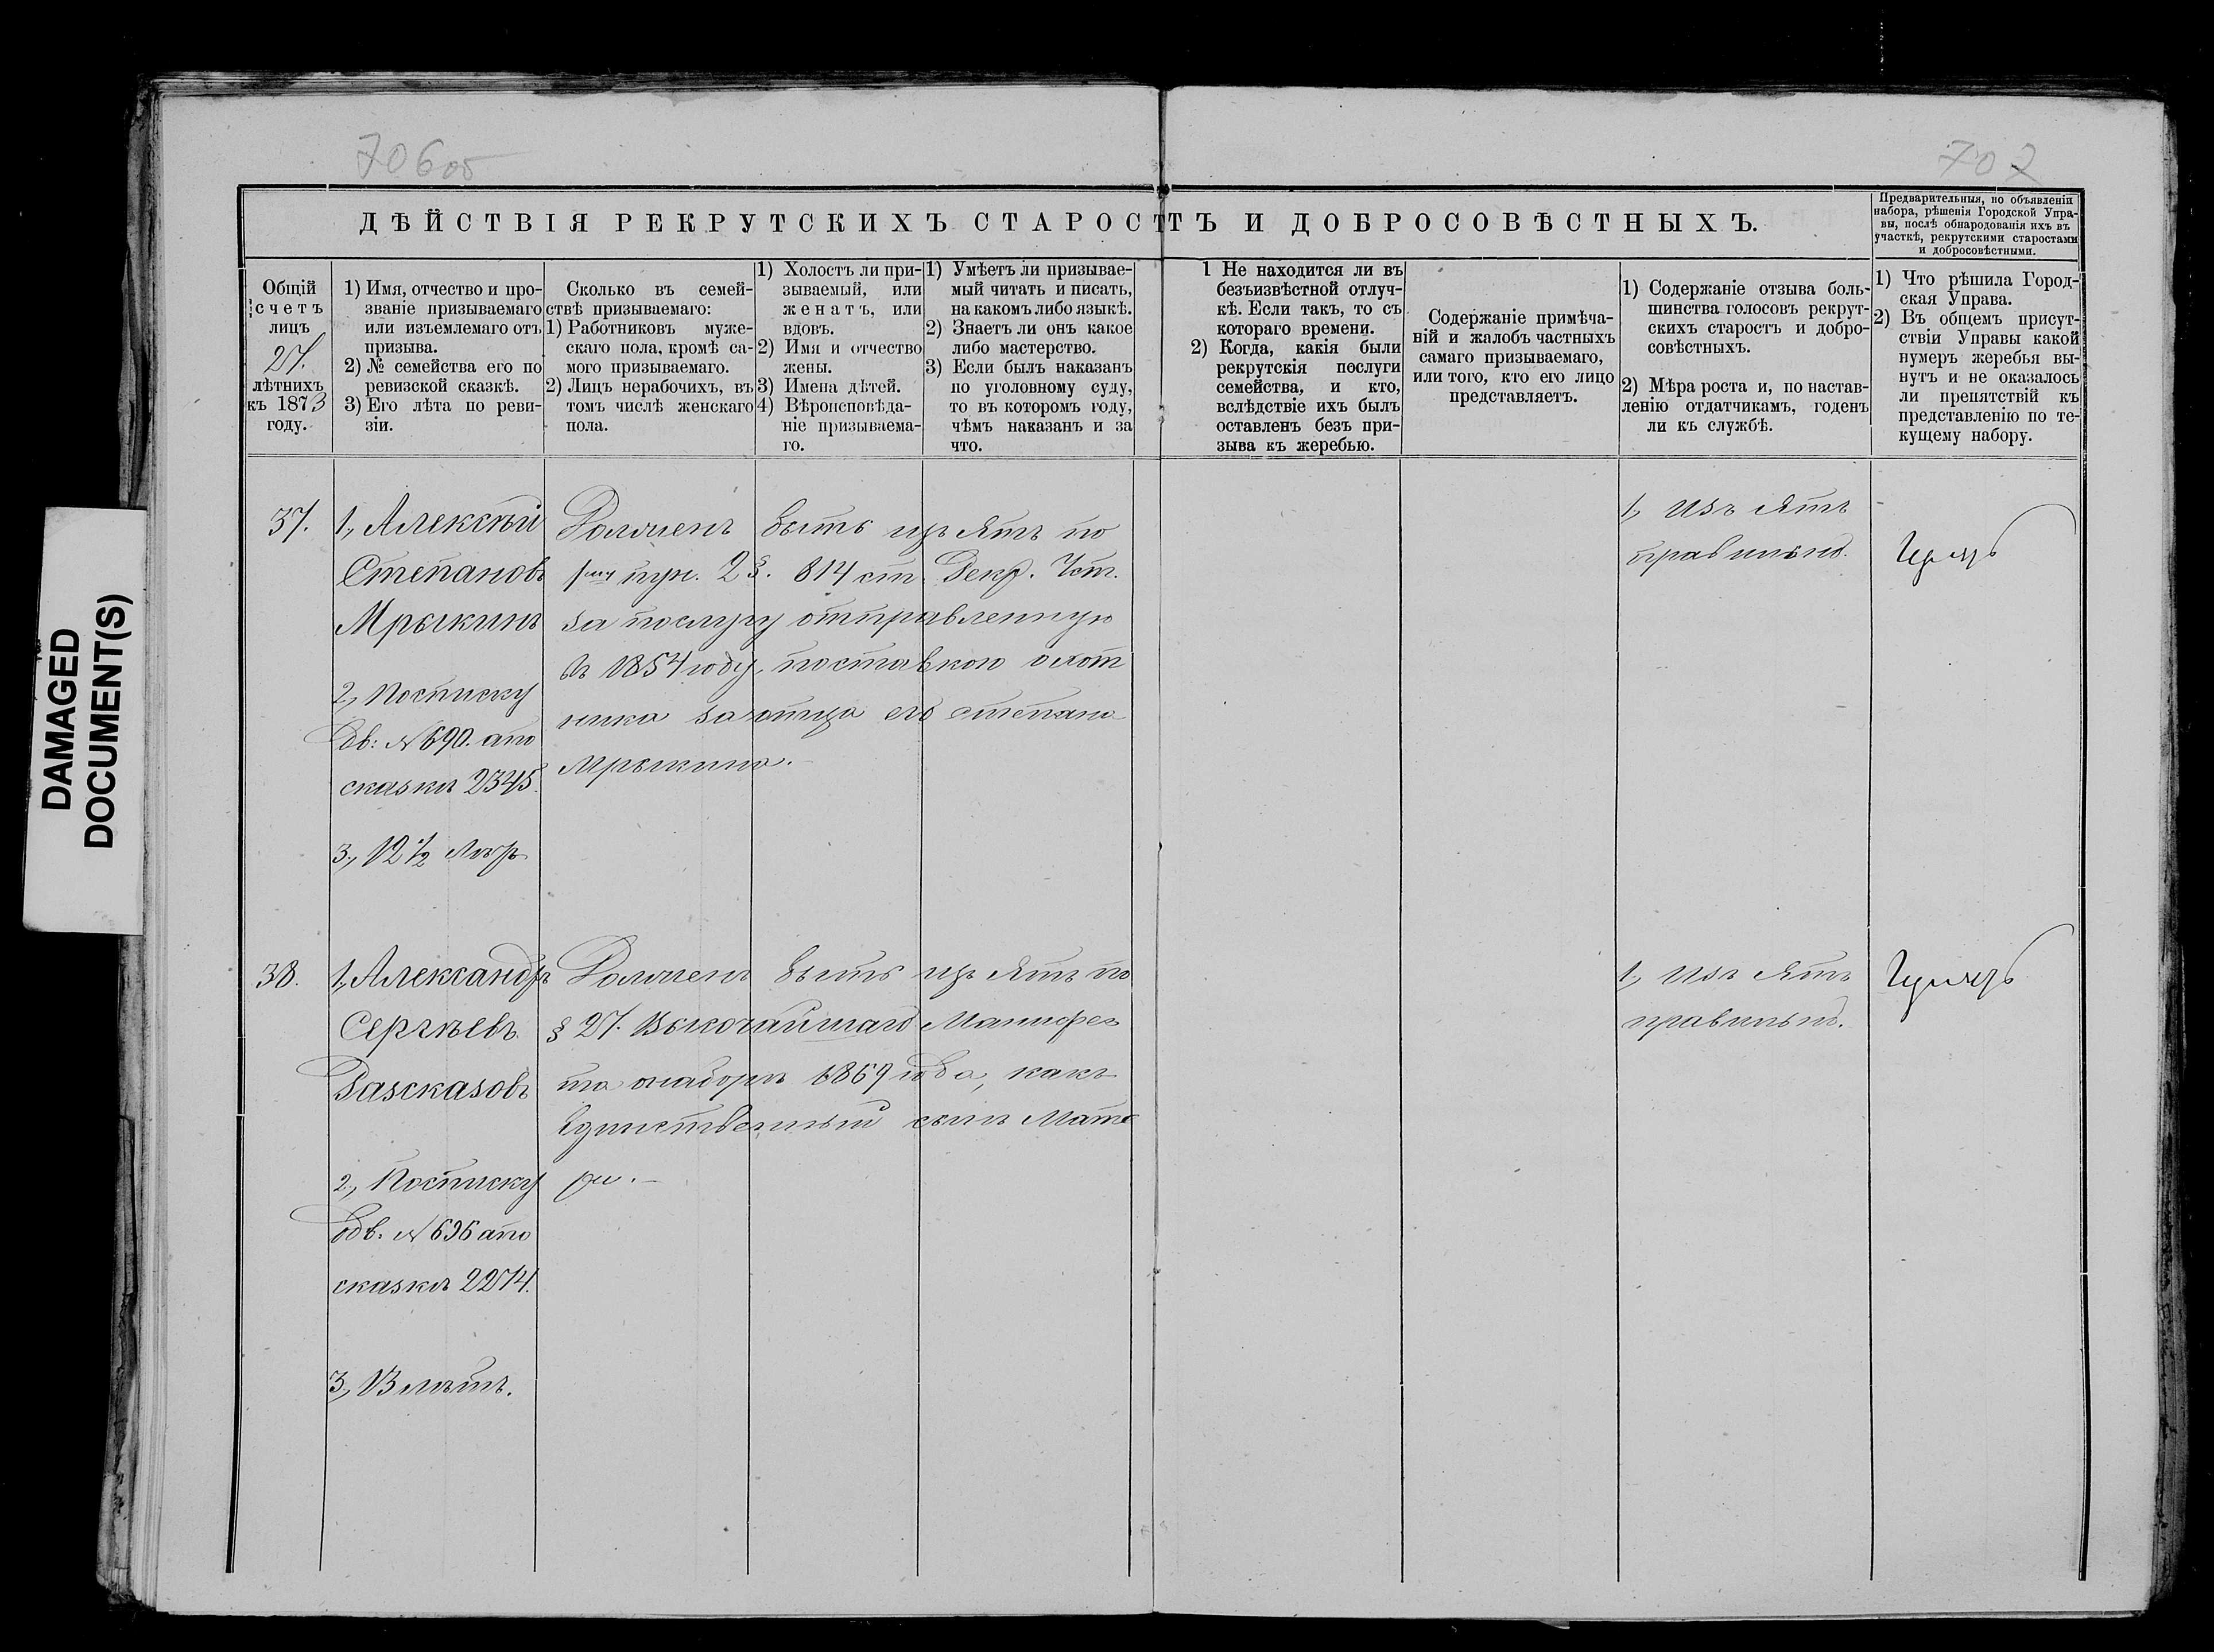 706об
707
ДѢЙСТВІЯ РЕКРУТСКИХЪ СТАРОСТЪ И ДОБРОСОВѢСТНЫХЪ.
Предварительныя, по объявленіи
набора, рѣшенія Городской Упра-
вы, послѣ обнародованія ихъ въ
участкѣ, рекрутскими старостами
и добросовѣстными.
Общій
счетъ
лицъ
27.
лѣтнихъ
къ 1873
году.
1) Имя, отчество и про-
званіе призываемаго
или изъемлемаго отъ
призыва.
2) № семейства его по
ревизской сказкѣ.
3) Его лѣта по реви-
зіи.
Сколько въ семей-
ствѣ призываемаго:
1) Работниковъ муже-
скаго пола, кромѣ са-
мого призываемаго.
2) Лицъ нерабочихъ, въ
томъ числѣ женскаго
пола.
1) Холостъ ли при-
зываемый, или
женатъ, или
вдовъ.
2) Имя и отчество
жены.
3) Имена дѣтей.
4) Вѣроисповѣда-
ніе призываема-
го.
1) Умѣетъ ли призывае-
мый читать и писать,
на какомъ либо языкѣ.
2) Знаетъ ли онъ какое
либо мастерство.
3) Если былъ наказанъ
по уголовному суду,
то въ которомъ году,
чѣмъ наказанъ и за
что.
1 Не находится ли въ
безъизвѣстной отлуч-
кѣ. Если такъ, то съ
котораго времени.
2) Когда, какія были
рекрутскія послуги
семейства, и кто,
вслѣдствіе ихъ былъ
оставленъ безъ при-
зыва къ жеребью.
Содержаніе примѣча-
ній и жалобъ частныхъ
самаго призываемаго,
или того, кто его лицо
представляетъ.
1) Содержаніе отзыва боль-
шинства голосовъ рекрут-
скихъ старостъ и добро-
совѣстныхъ.
2) Мѣра роста и, по настав-
ленію отдатчикамъ, годенъ
ли къ службѣ.
1) Что рѣшила Город-
ская Управа.
2) Въ общемъ присут-
ствіи Управы какой
нумеръ жеребья вы-
нутъ и не оказалось
ли препятствій къ
представленію по те-
кущему набору.
37.
1, Алексѣй
Степановъ
Мрыкинъ
2, Посписку
Об: № 690. апо
сказкѣ 2345.
3, 12 1/2 лѣтъ
Долженъ быть изъятъ по
1му пун. 2 §. 814 ст. Рекр. Уст.
за послугу отправленную
въ 1854 году, поставкою охот
ника за отца его Степана
Мрыкина.
1, Изъятъ
правильно.
38.
1, Александръ
Сергѣевъ
Разсказовъ
2, Посписку
Об. № 696 апо
сказкѣ 2274.
3, 13 лѣтъ.
Долженъ быть изъятъ по
§ 27. Высочайшаго Манифес
та онаборѣ 1869 года, какъ
единственный сынъ Мате
ри.
1, Изъятъ
правильно.
DAMAGED
DOCUMENT(S)